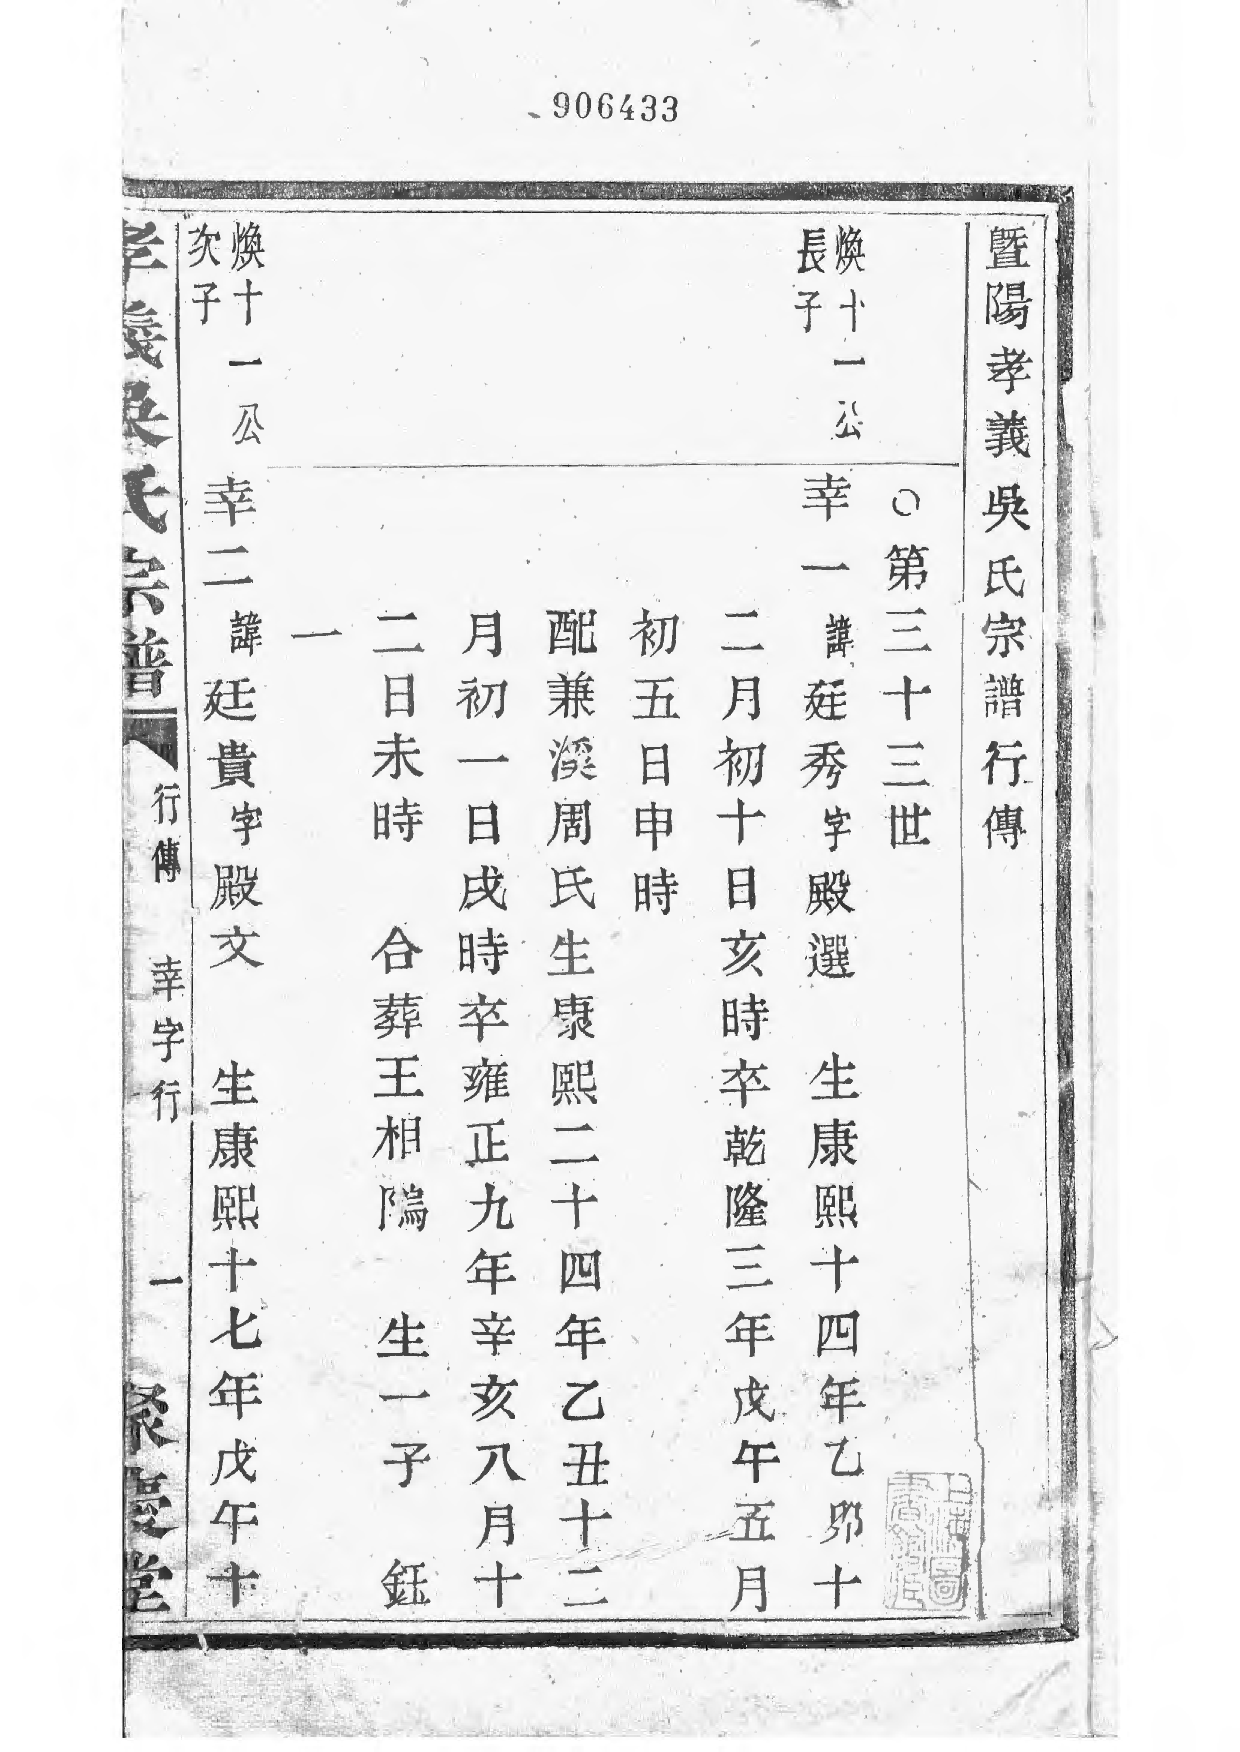 906433
暨陽孝義吳氏宗譜行傳
○第三十三世
煥十一公
長子
幸一諱廷秀字殿選 生康熙十四年乙夘十
二月初十日亥時卒乾隆三年戊午五月
初五日申時
配兼溪周氏生康熙二十四年乙丑十二
月初一日戌時卒雍正九年辛亥八月十
二日未時 合葬王相隝 生一子 鈺
一
煥十一公
次子
幸二諱廷貴字殿文 生康熙十七年戊午十
孝義吳氏宗譜 行傳 幸字行 一 聚慶堂
上海圖
書館藏